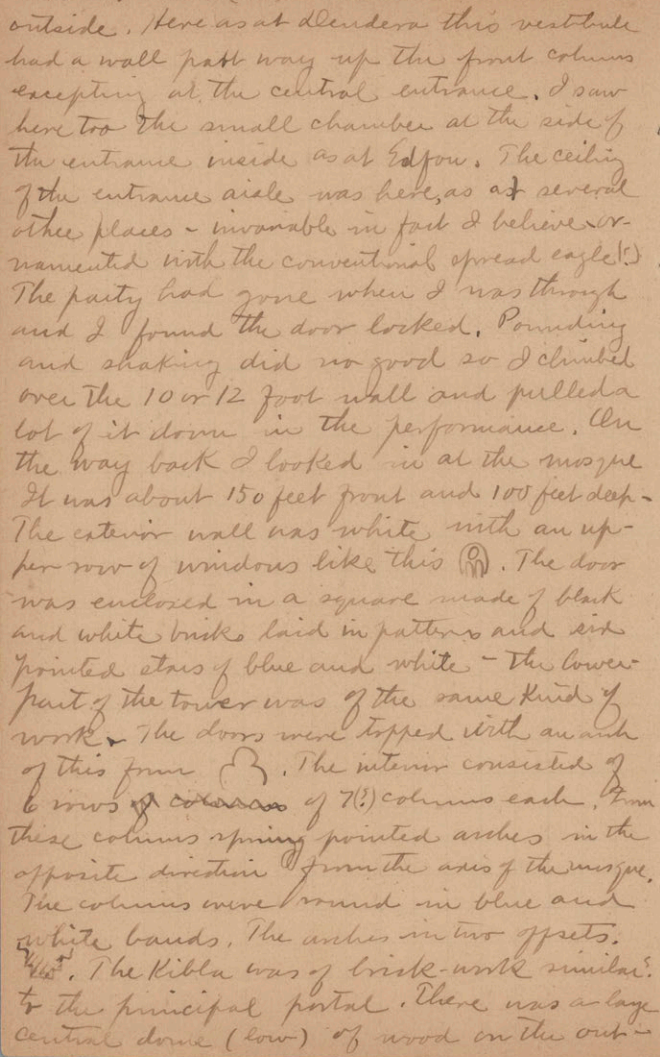 outside. Here as at dendera this vestibule
had a wall part way up the front columns
excepting at the central entrance. I saw
here too the small chamber at the side of
the entrance inside as at Edfou. The ceiling
of the entrance aisle was here, as at several
other places - invariable in fact I believe or-
namented with the conventional spread eagle(?)
The party had gone when I was through
and I found the door locked. Pounding
and shaking did no good so I climbed
over the 10 or 12 foot wall and pulled a
lot of it down in the performance. On
the way back I looked in at the mosque
It was about 150 feet front and 100 feet deep -
The exterior wall was white with an up-
per row of windows like this . The door
was enclosed in a square made of black
and white bricks laid in patterns and six
pointed stars of blue and white - the lower
part of the tower was of the same kind of
work. The doors were topped with an arch
of this form . The interior consisted of
6 rows of columns of 7(?) columns each. From
these columns spring pointed arches in the
opposite direction from the axis of the mosque.
The columns were round in blue and
white bands. The arches in two offsets.
The Kibla was of brick-work similar
to the principal portal. There was a large
central dome (low) of wood on the out-